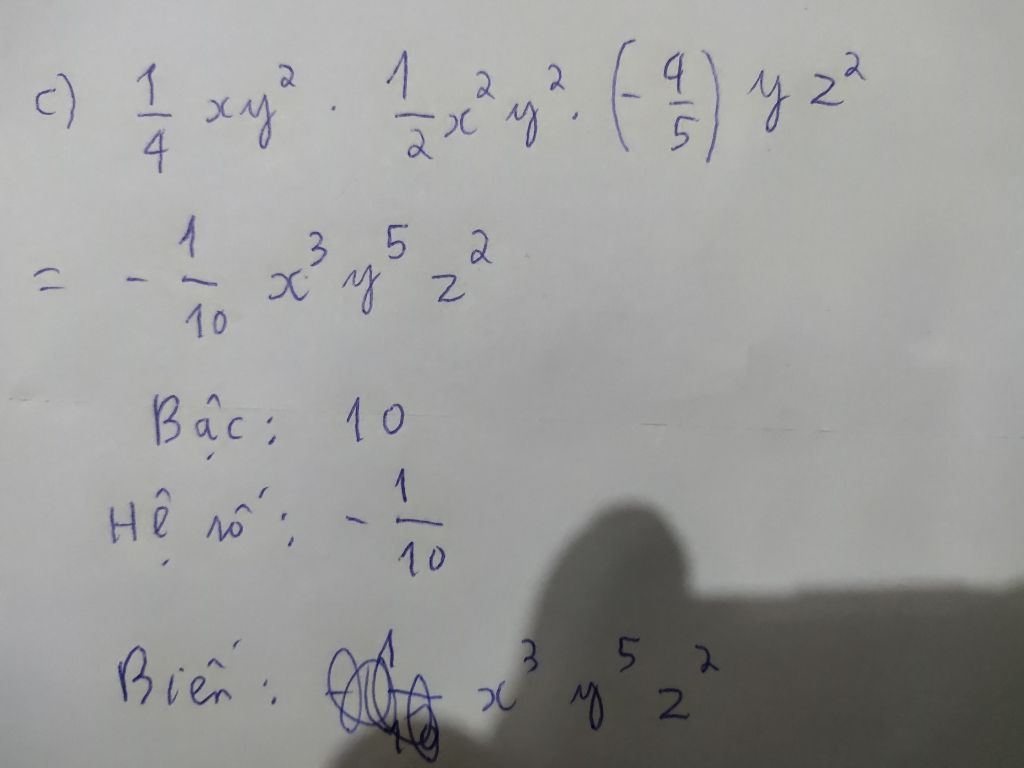 c) 1/4 xy² · 1/2 x²y² . (- 4/5) yz²
= - 1/10 x³ y⁵ z²
Bậc: 10
Hệ số: - 1/10
Biến: x³ y⁵ z²